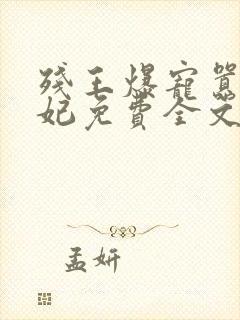 残王爆寵囂
妃免費全文
孟妍